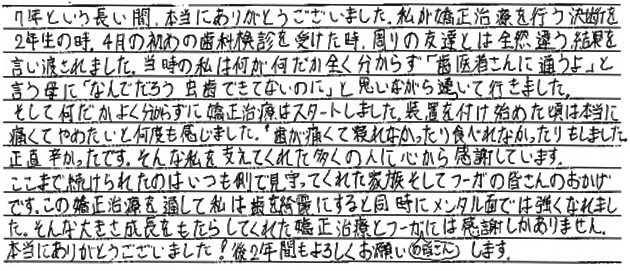 7年という長い間、本当にありがとうございました。私が矯正治療を行う決断を
2年生の時、4月の初めの歯科検診を受けた時、周りの友達とは全然違う結果を
言い渡されました。当時の私は何が何だか全く分からず「歯医者さんに通うよ」と
言う母に「なんでだろう 虫歯できてないのに」と思いながら通って行きました。
そして何だかよく分からずに矯正治療はスタートしました。装置を付け始めた頃は本当に
痛くてやめたいと何度も感じました。歯が痛くて寝れなかったり食べれなかったりもしました。
正直辛かったです。そんな私を支えてくれた多くの人に心から感謝しています。
ここまで続けられたのはいつも側で見守ってくれた家族そしてフーガの皆さんのおかげ
です。この矯正治療を通して私は歯を綺麗にすると同時にメンタル面では強くなれまし
た。そんな大きな成長をもたらしてくれた矯正治療とフーガには感謝しかありません。
本当にありがとうございました!後2年間もよろしくお願い します。